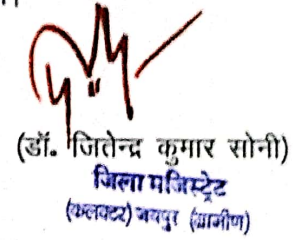 (डॉ. जितेन्द्र कुमार सोनी)
जिला मजिस्ट्रेट
(कलक्टर) जयपुर (ग्रामीण)